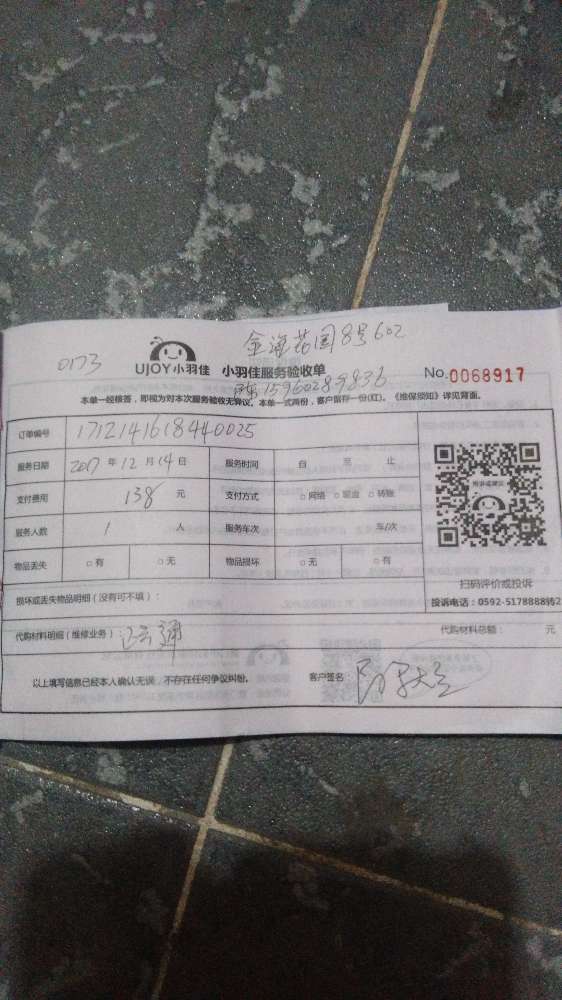 金海花园8号602
0173
UJOY小羽佳 小羽佳服务验收单 No.0068917
陈15960289836
本单一经核签，即视为对本次服务验收无异议。本单一式两份，客户留存一份(红)。《维保须知》详见背面。
订单编号 1712141618440025
服务日期 2017 年 12 月 14 日 服务时间 自 至 止
支付费用 138 元 支付方式 □网络 □现金 □转账
服务人数 1 人 服务车次 车/次
物品丢失 □有 □无 物品损坏 □无 □有
扫码评价或投诉
损坏或丢失物品明细（没有可不填）：
投诉电话：0592-5178888转2
代购材料明细（维修业务） 代购材料总额： 元
以上填写信息已经本人确认无误，不存在任何争议纠纷。 客户签名：